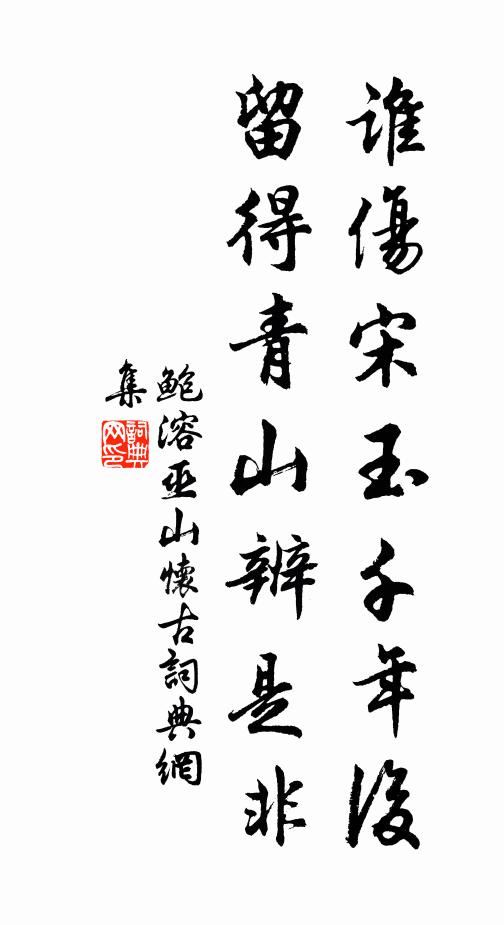 誰傷宋玉千年後
留得青山辨是非
鮑溶巫山懷古詞典網
集
詞典网印